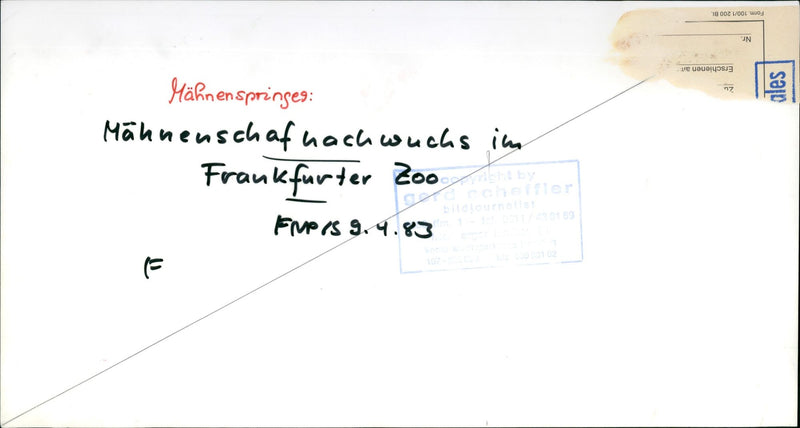 Form. 100/1 200 Bl.
Nr.
Erschienen am
Zu
ales
Mähnenspringer:
Mähnenschafnachwuchs im
Frankfurter Zoo
FNP/S 9.4.83
F
copyright by
gerd scheffler
bildjournalist